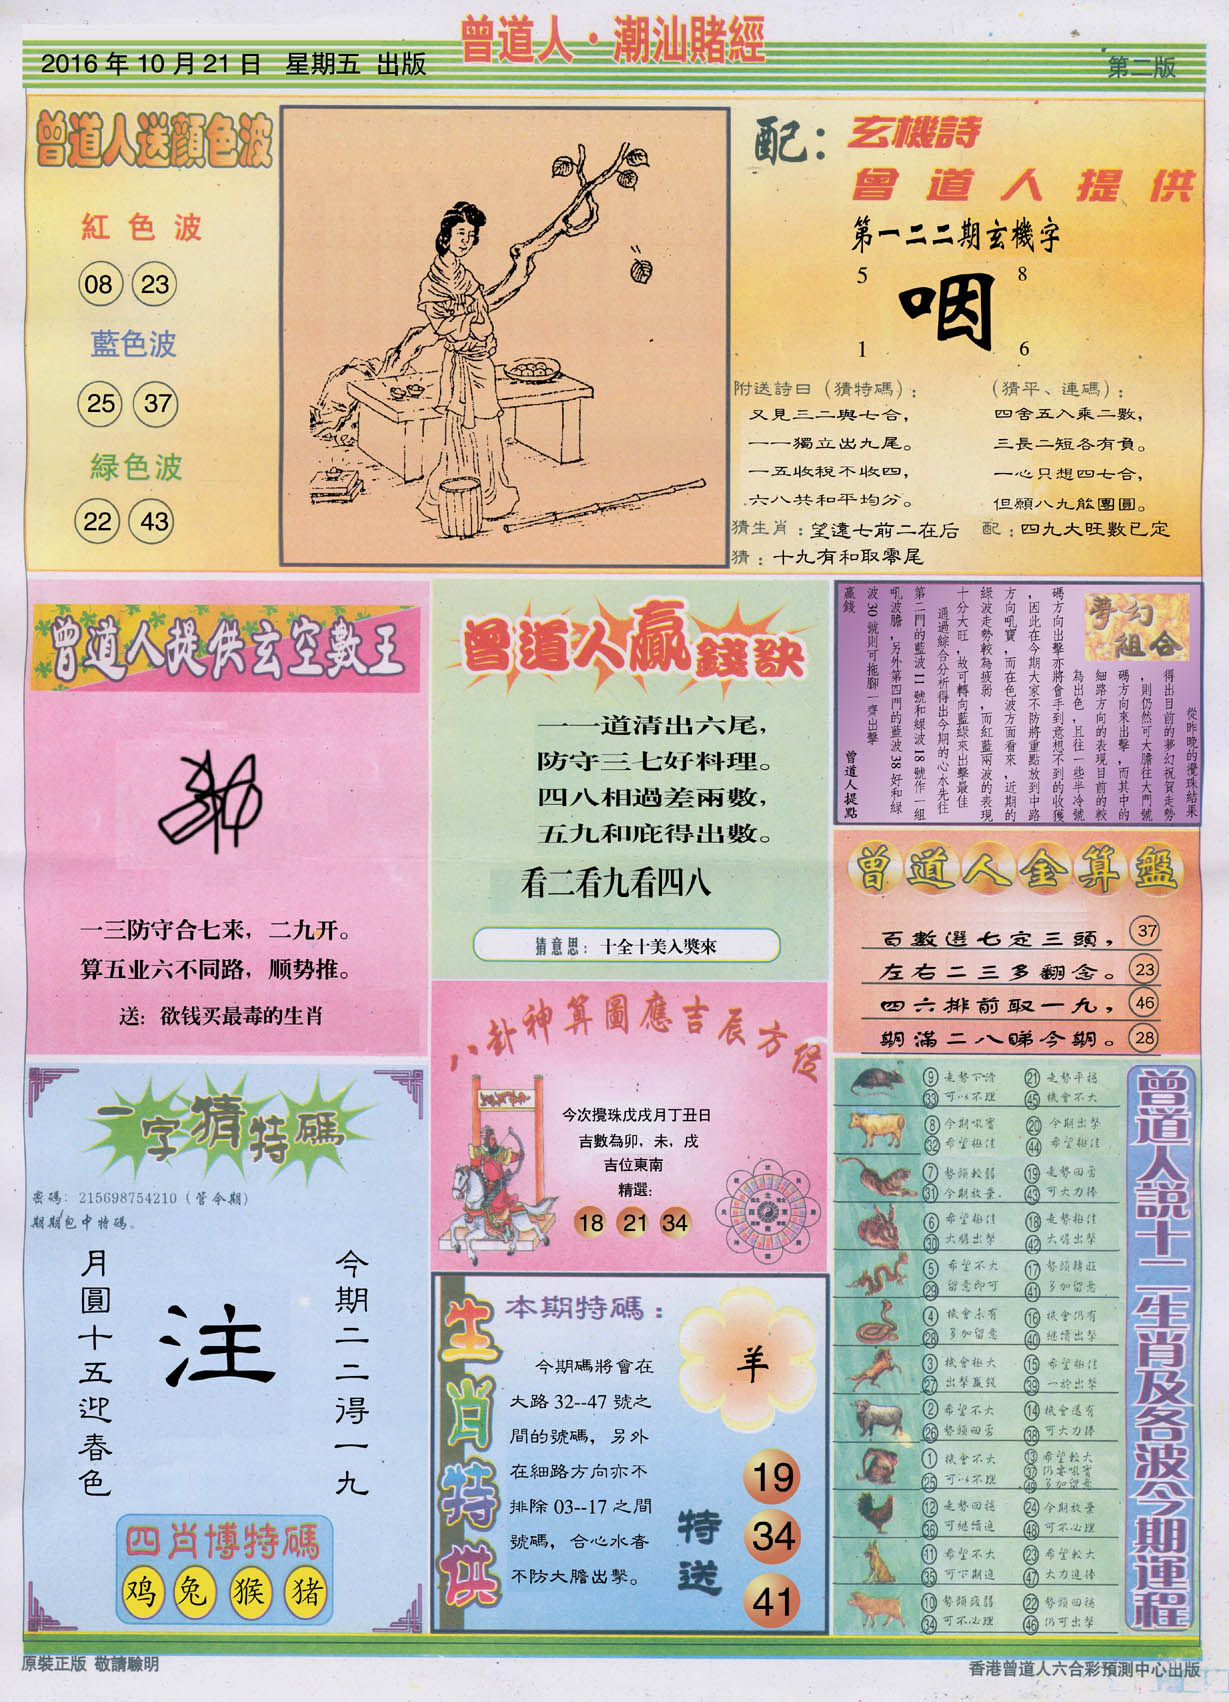 曾道人·潮汕賭經
2016年10月21日 星期五 出版
第二版
曾道人送顏色波
紅色波
08 23
藍色波
25 37
緑色波
22 43
配：玄機詩
曾道人提供
第一二二期玄機字
5 8
咽
1 6
附送詩曰（猜特碼）：
又見三二與七合，
一一獨立出九尾。
一五收稅不收四，
六八共和平均分。
（猜平、連碼）：
四舍五入乘二數，
三長二短各有負。
一心只想四七合，
但願八九能團圓。
猜生肖：望遠七前二在后
配：四九大旺數已定
猜：十九有和取零尾
曾道人提供玄空數王
一三防守合七来，二九开。
算五业六不同路，顺势推。
送：欲钱买最毒的生肖
曾道人贏錢訣
一一道清出六尾，
防守三七好料理。
四八相過差兩數，
五九和庇得出數。
看二看九看四八
猜意思：十全十美入獎來
夢幻組合
從昨晚的攪珠結果
得出目前的夢幻祝賀走勢
，則仍然可大膽往大門號
碼方向來出擊，而其中的
細路方向的表現目前的較
為出色，且往一些半冷號
碼方向出擊亦將會手到意想不到的收獲
，因此在今期大家不防將重點放到中路
方向吼寶，而在色波方面看來，近期的
綠波走勢較為疲弱，而紅藍兩波的表現
十分大旺，故可轉向藍綠來出擊最佳
通過綜合分析得出今期的心水先往
第二門的藍波11號和綠波18號作一組
吼波膽，另外第四門的藍波38好和綠
波30號則可拖腳一齊出擊
贏錢
曾道人提點
曾道人金算盤
百數選七定三頭， 37
左右二三多翻念。 23
四六排前取一九， 46
期滿二八睇今期。 28
八卦神算圖應吉辰方位
今次攪珠戊戌月丁丑日
吉數為卯，未，戌
吉位東南
精選：
18 21 34
一字猜特碼
密碼：215698754210（管今期）
期期包中特碼。
今期二二得一九
注
月圓十五迎春色
四肖博特碼
鸡 兔 猴 猪
生肖特供
本期特碼：
羊
今期碼將會在
大路32--47號之
間的號碼，另外
在細路方向亦不
排除03--17之間
號碼，合心水者
不防大膽出擊。
特送
19
34
41
曾道人説十二生肖及各波今期運程
9 走勢下滑 21 走勢平穩
33 可以不理 45 機會不大
8 今期吼實 20 今期出擊
32 希望極佳 44 希望極佳
7 勢頭較弱 19 走勢回勇
31 今期放棄 43 可大力捧
6 希望極佳 18 走勢極佳
30 大膽出擊 42 大膽出擊
5 希望不大 17 勢頭轉旺
29 留意即可 41 多加留意
4 機會未有 16 機會仍有
28 多加留意 40 繼續出擊
3 機會極大 15 希望極佳
27 出擊贏錢 39 一於出擊
2 希望不大 14 機會還有
26 勢頭回勇 38 可大力捧
1 機會不大 13 希望較大
25 可以不理 37 仍要吼實
49 多加留意
12 走勢回穩 24 今期放棄
36 可繼續追 48 可不必理
11 希望不大 23 希望較大
35 可下期追 47 大力追捧
10 勢頭疲弱 22 勢頭回穩
34 可不必理 46 仍可出擊
原裝正版 敬請驗明
香港曾道人六合彩預測中心出版